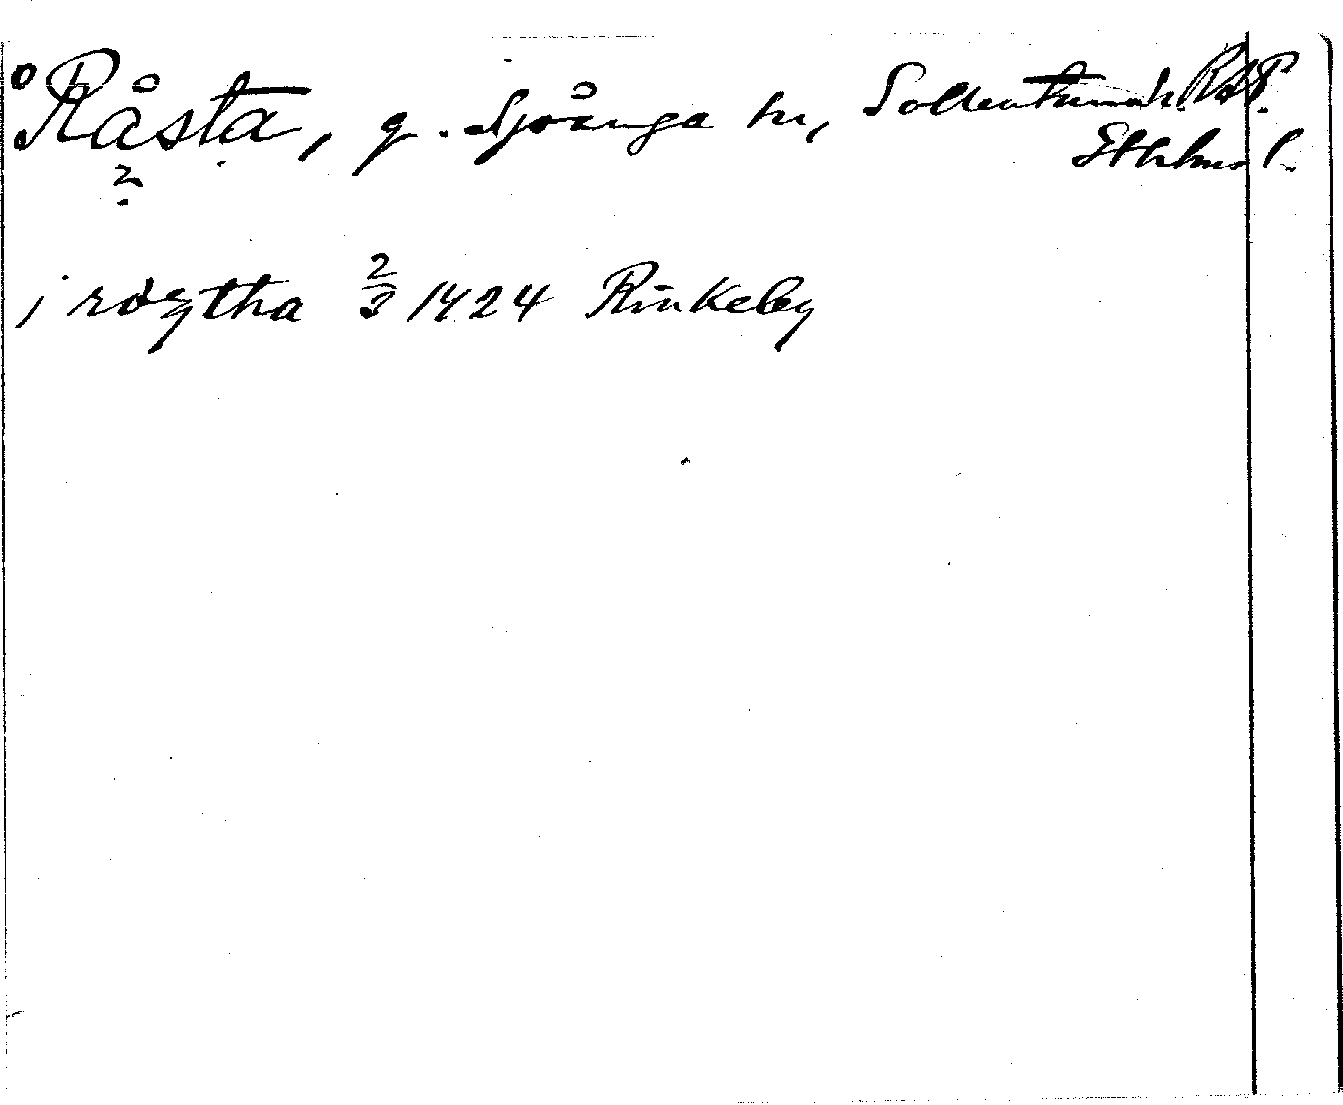 ° Råsta, g. Spånga sn, Sollentuna h. RAP.
Sthlms l.
2
i røztha 2/3 1424 Rinkeby